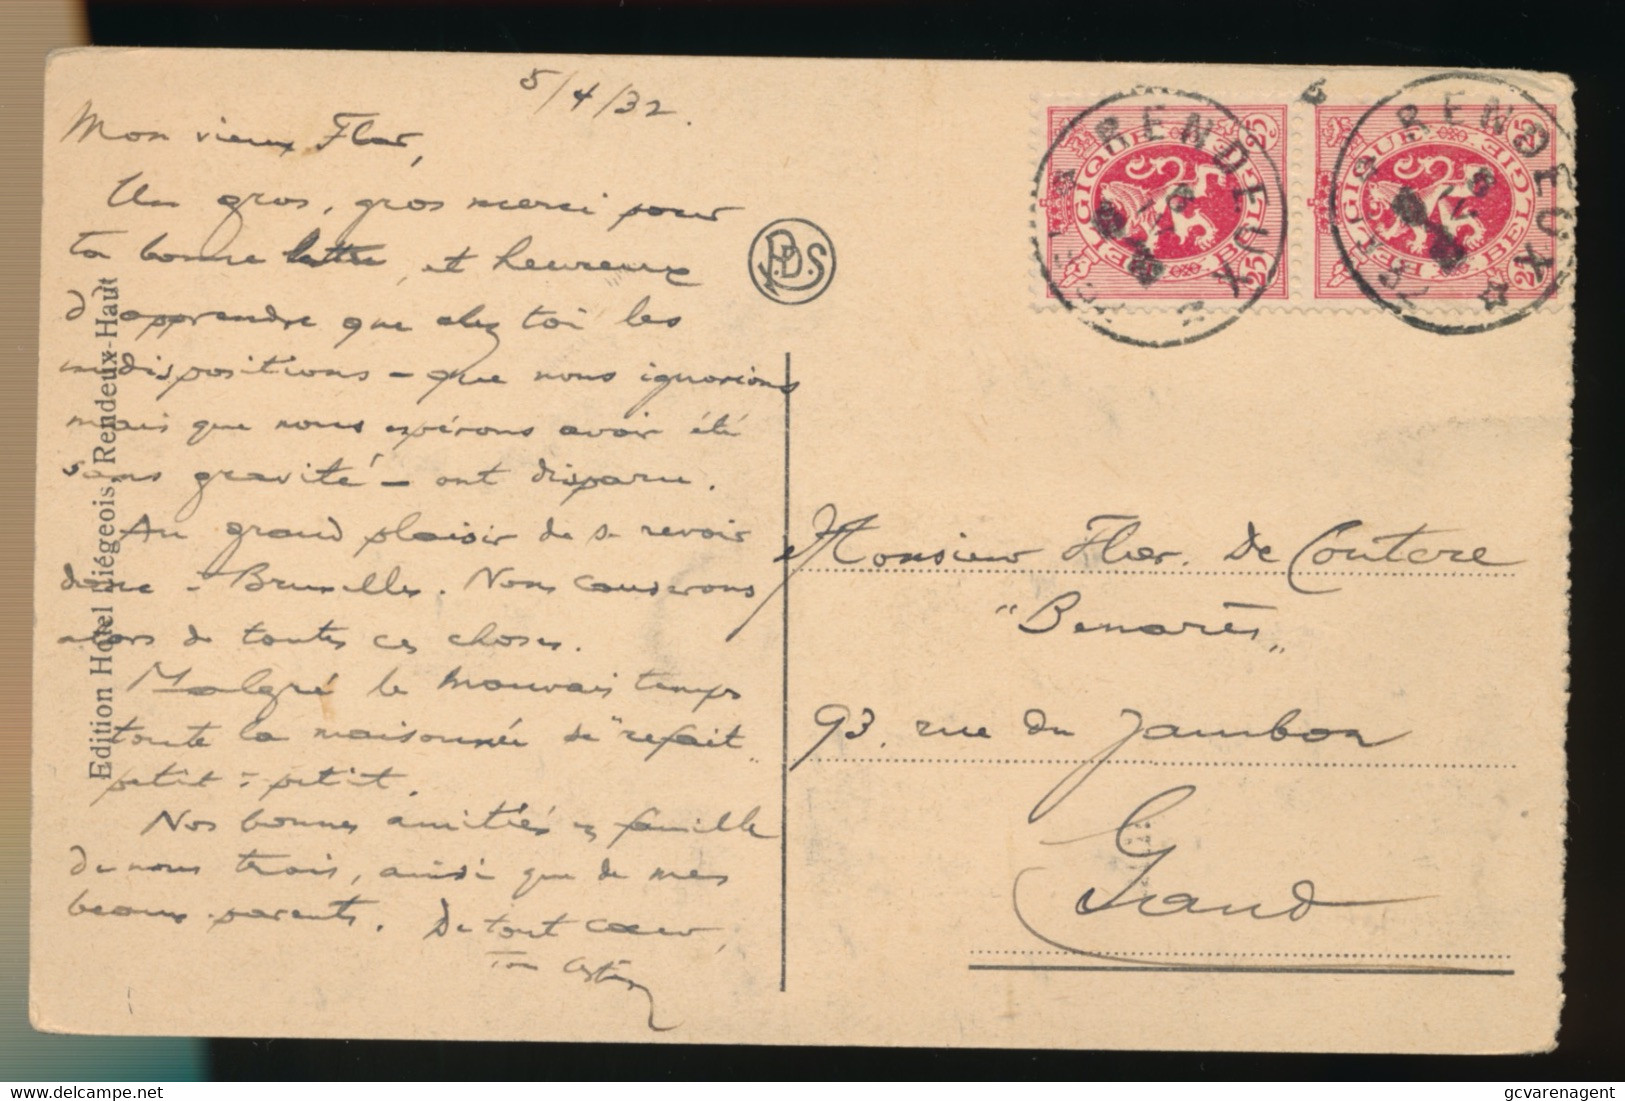 5/4/32.
Mon vieux Flor,
Un gros, gros merci pour
ta bonne lettre, et heureux
d'apprendre que chez toi les
indispositions – que nous ignorions
mais que nous espérons avoir été
sans gravité – ont disparu.
Au grand plaisir de se revoir
donc à Bruxelles. Nous causerons
alors de toutes ces choses.
Malgré le mauvais temps
toute la maisonnée se "refait"
petit à petit.
Nos bonnes amitiés en famille
de nous trois, ainsi que de mes
beaux-parents. De tout coeur,
Ton
Edition Hotel Liégeois, Rendeux-Haut
P.D.S
BELGIQUE BELGIE
25 25
RENDEUX
BELGIQUE BELGIE
25 25
RENDEUX
Monsieur Flor. De Coutere
"Benarès"
93, rue du Jambon
Gand
gcvarenagent